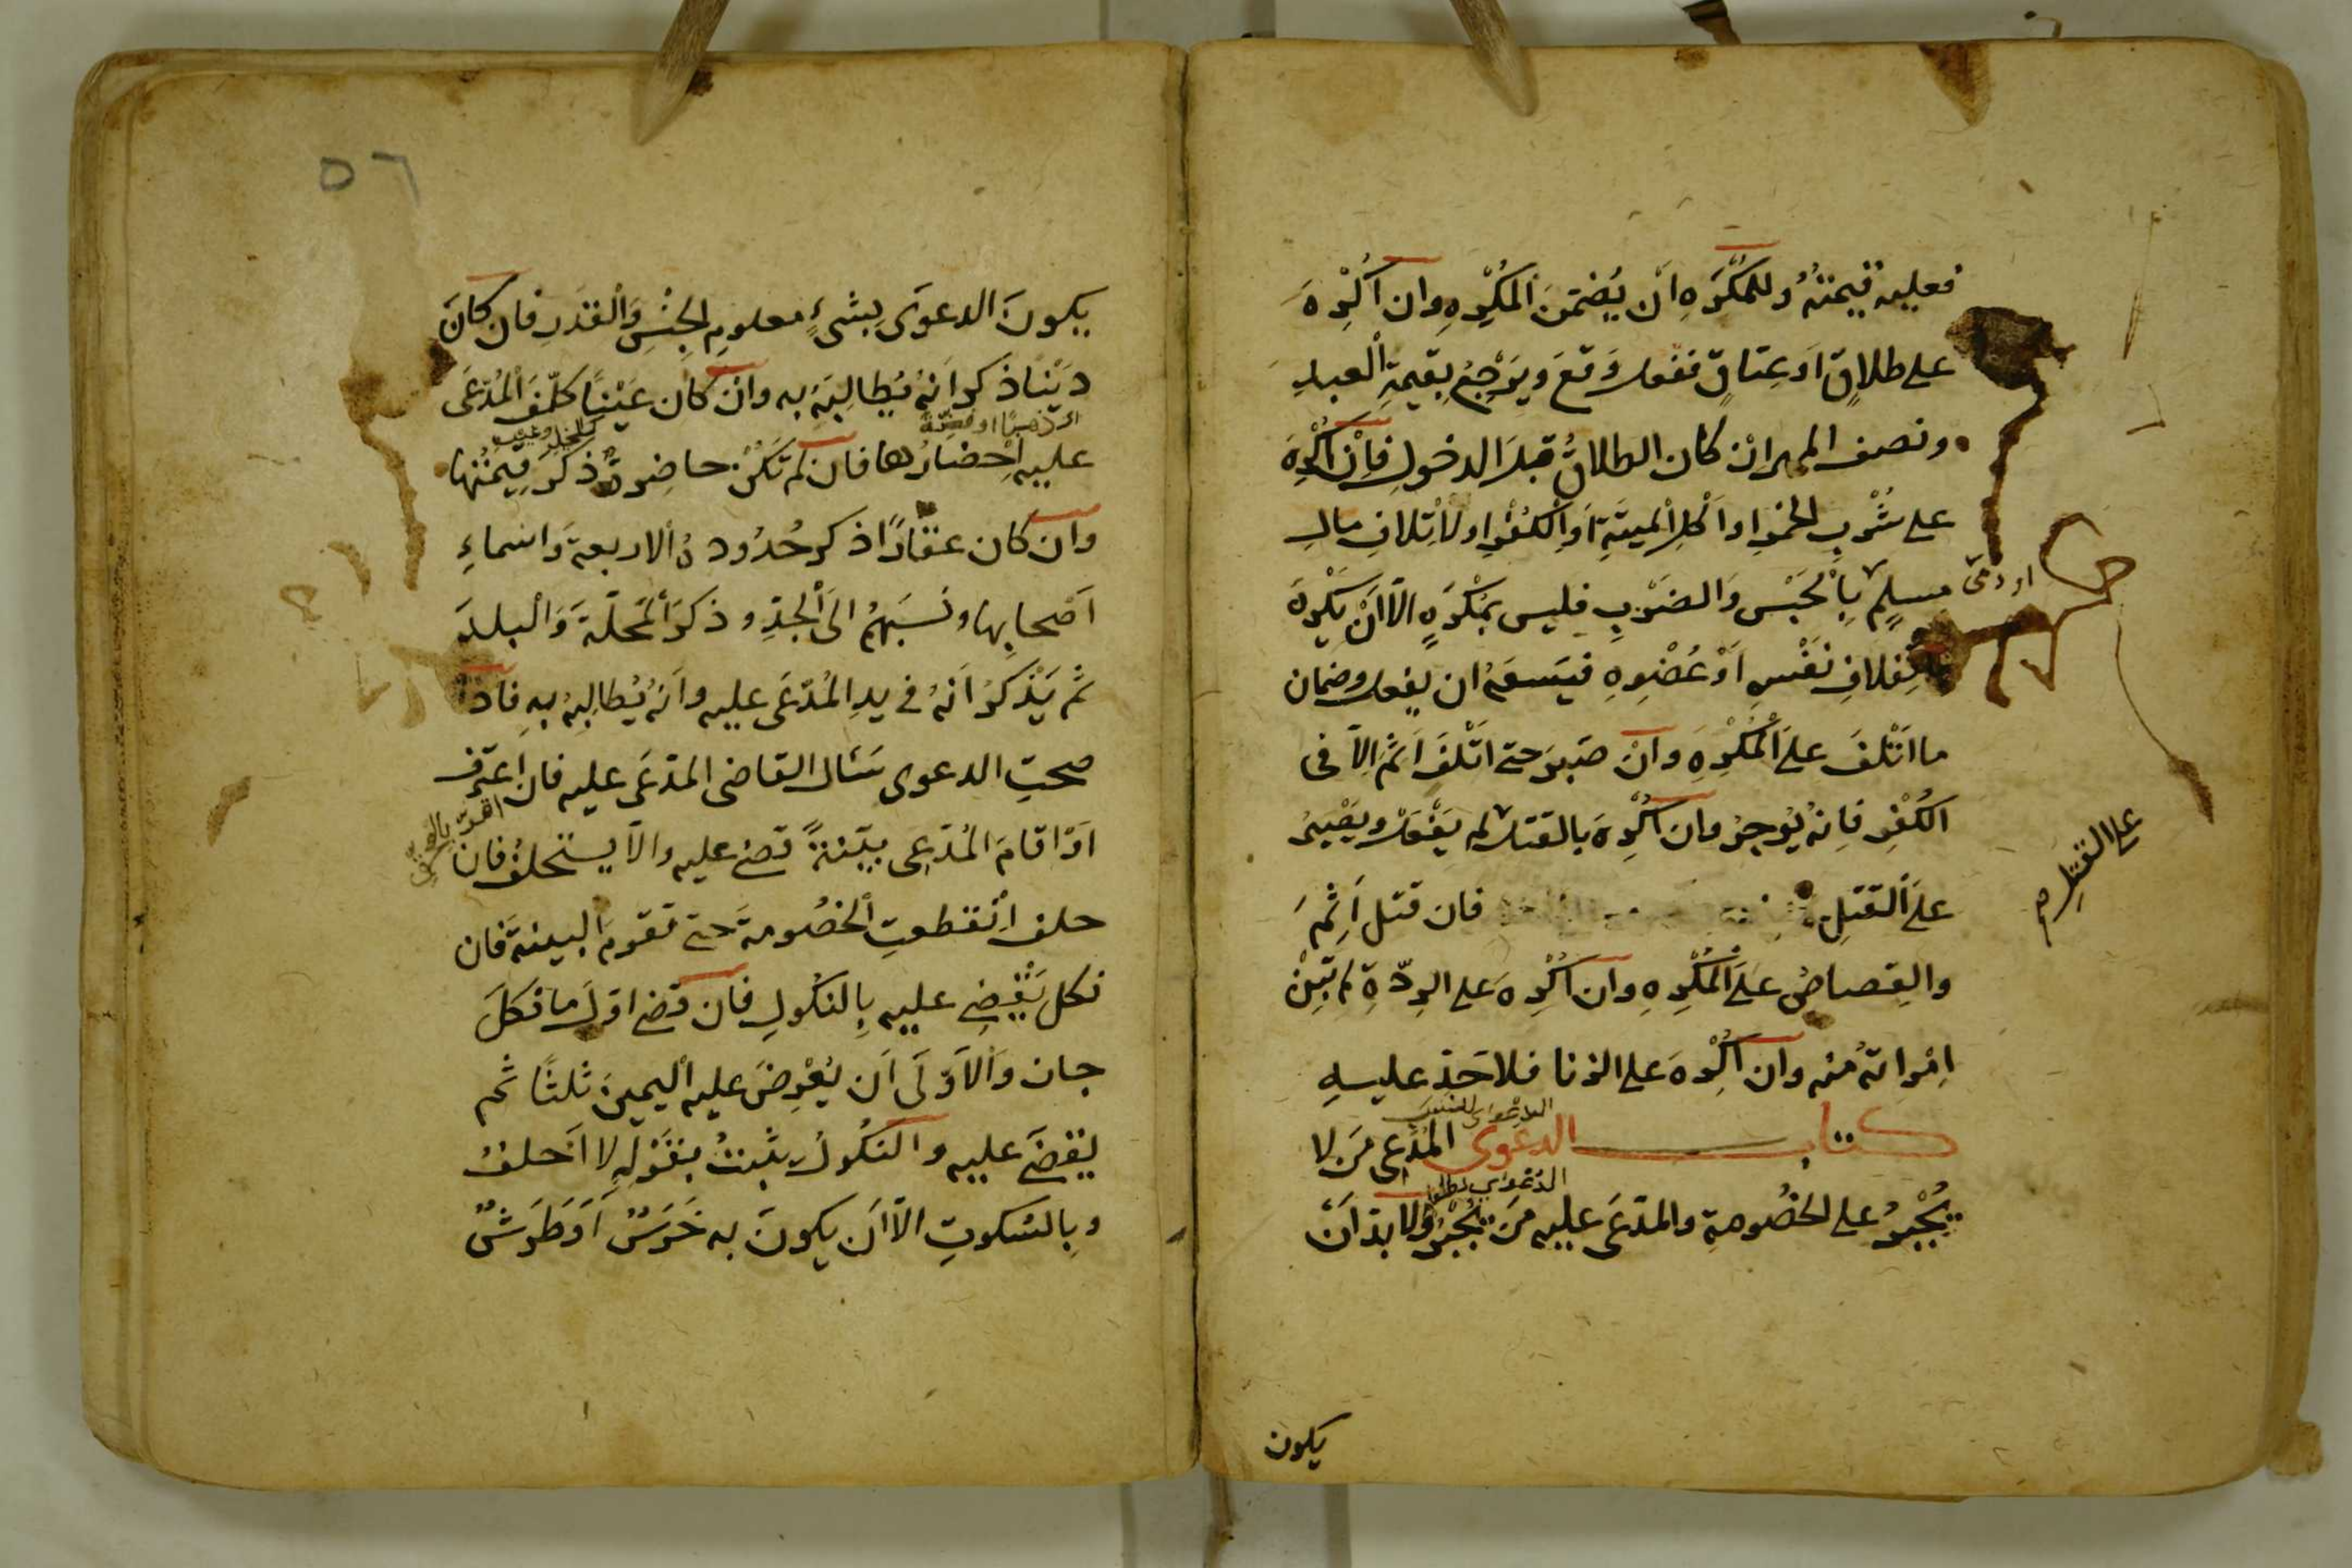 فعليه قيمته وللمُكْرَهِ اَن يُضَمّنَ المُكْرِهِ وان اُكْرِهَ
على طلاقٍ اَو عِتاقٍ ففعل وَقعَ وَيَرْجِعُ بِقيمةِ العبدِ
ونصف المهر ان كان الطلاقُ قبلَ الدخولِ فاِنْ اُكْرِهَ
على شُرْبِ الخمرِ او اَكْلِ الميتةِ اَوِ الكُفْرِ او لاتلافِ مالِ
مسلمٍ بِالْحَبْسِ وَالضرْبِ فليس بمُكْرَهٍ الاّ اَن يُكْرِهَ
او ذمى
باتلافِ نَفْسِهِ اَوْ عُضْوِهِ فيَسَعُهُ ان يفعل وضمان
ما اَتْلَفَ علَى المُكْرِهِ وانْ صَبرَ حتى اتْلَفَ اَثِمَ اِلاّ فى
الكُفْرِ فاِنهُ يُوجرُ وان اُكْرِهَ بالقتل لم يَفْعَلْ ويَصْبِرُ
علَى القتلِ فان قتل اَثِمَ
على القتل صح
والقِصاصُ علَى المُكْرِهِ وان اُكْرِهَ على الرِدّةِ لم تَبِنْ
اِمْراتهُ منه وان اُكْرِهَ على الزنا فلا حَدّ عليهِ
كتاب الدعوى المُدّعى مَن لا
يُجْبَرُ على الخصُومةِ والمدّعَى عليه مَن يُجْبَرُ ولا بدّ اَنْ
يكون
٥٦
يكونَ الدعوَى بِشىءٍ معلومِ الجِنْسِ وَالقدَرِ فان كانَ
دَيْنا ذَكر اَنهُ يُطالِبَهُ به وانْ كان عَيْنًا كلّفَ المُدّعَى
او ذهبًا او فضّة
عليه اِحْضارُها فان لم تَكُنْ حاضِرةً ذَكَرَ قِيمتُها
وان كان عقارًا ذكر حُدُودهُ الاربعةَ وَاسماءِ
اَصْحابِها ونَسَبَهُمْ الى الجدِّ وذكرَ المحلّةَ وَالبلدَ
ثم يَذْكرُ اَنهُ فى يدِ المُدّعَى عليه وانّهُ يُطالِبُه بهِ فاذا
صحتِ الدعوى سَئال القاضى المدّعَى عليه فان اعترف
اَوْ اقامَ المُدّعِى بيّنةً قضى عليه والاّ يستحلفُ فان
حلف اِنْقطعتِ الخصُومة حتى تقومَ البينةُ فان
نكل يَقْضِى عليه بِالنكُولِ فان قضى اوّلَ ما نكلَ
جان وَالاَوْلَى اَن يُعْرِضَ عليه اليمينَ ثلثًا ثم
يقضَى عليه والنكُولُ يثبتُ بقَوْلِهِ لا اَحلفُ
وبِالسكوتِ الاّ اَن يكونَ به خَرَسٌ اَوْ طَرَشٌ